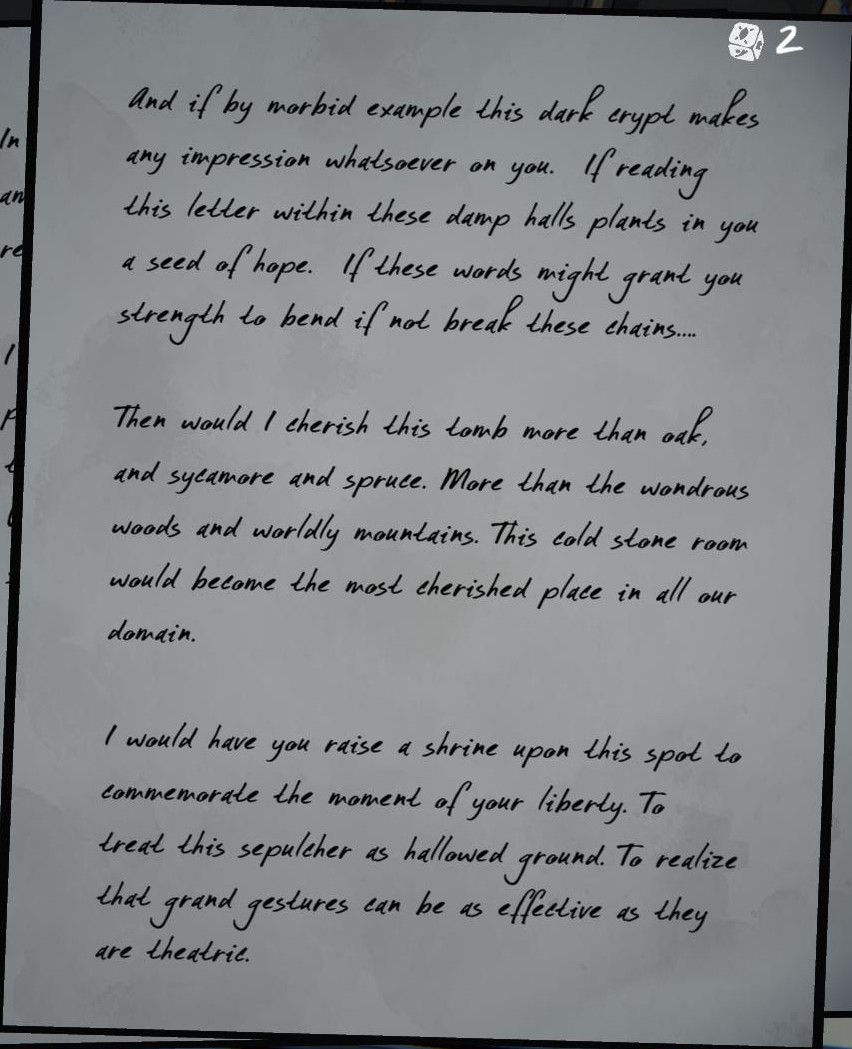 2
And if by morbid example this dark crypt makes
any impression whatsoever on you. If reading
this letter within these damp halls plants in you
a seed of hope. If these words might grant you
strength to bend if not break these chains....
Then would I cherish this tomb more than oak,
and sycamore and spruce. More than the wondrous
woods and worldly mountains. This cold stone room
would become the most cherished place in all our
domain.
I would have you raise a shrine upon this spot to
commemorate the moment of your liberty. To
treat this sepulcher as hallowed ground. To realize
that grand gestures can be as effective as they
are theatric.
In
an
re
I